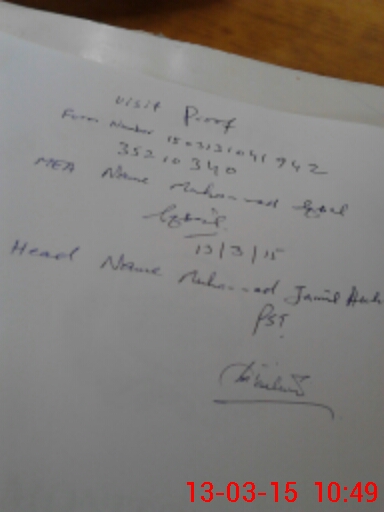 Visit Proof
Form Number 1503131041942
35210340
MEA Name Muhammad Iqbal
Iqbal
13/3/15
Head Name Muhammad Jamil
PST
13-03-15 10:49